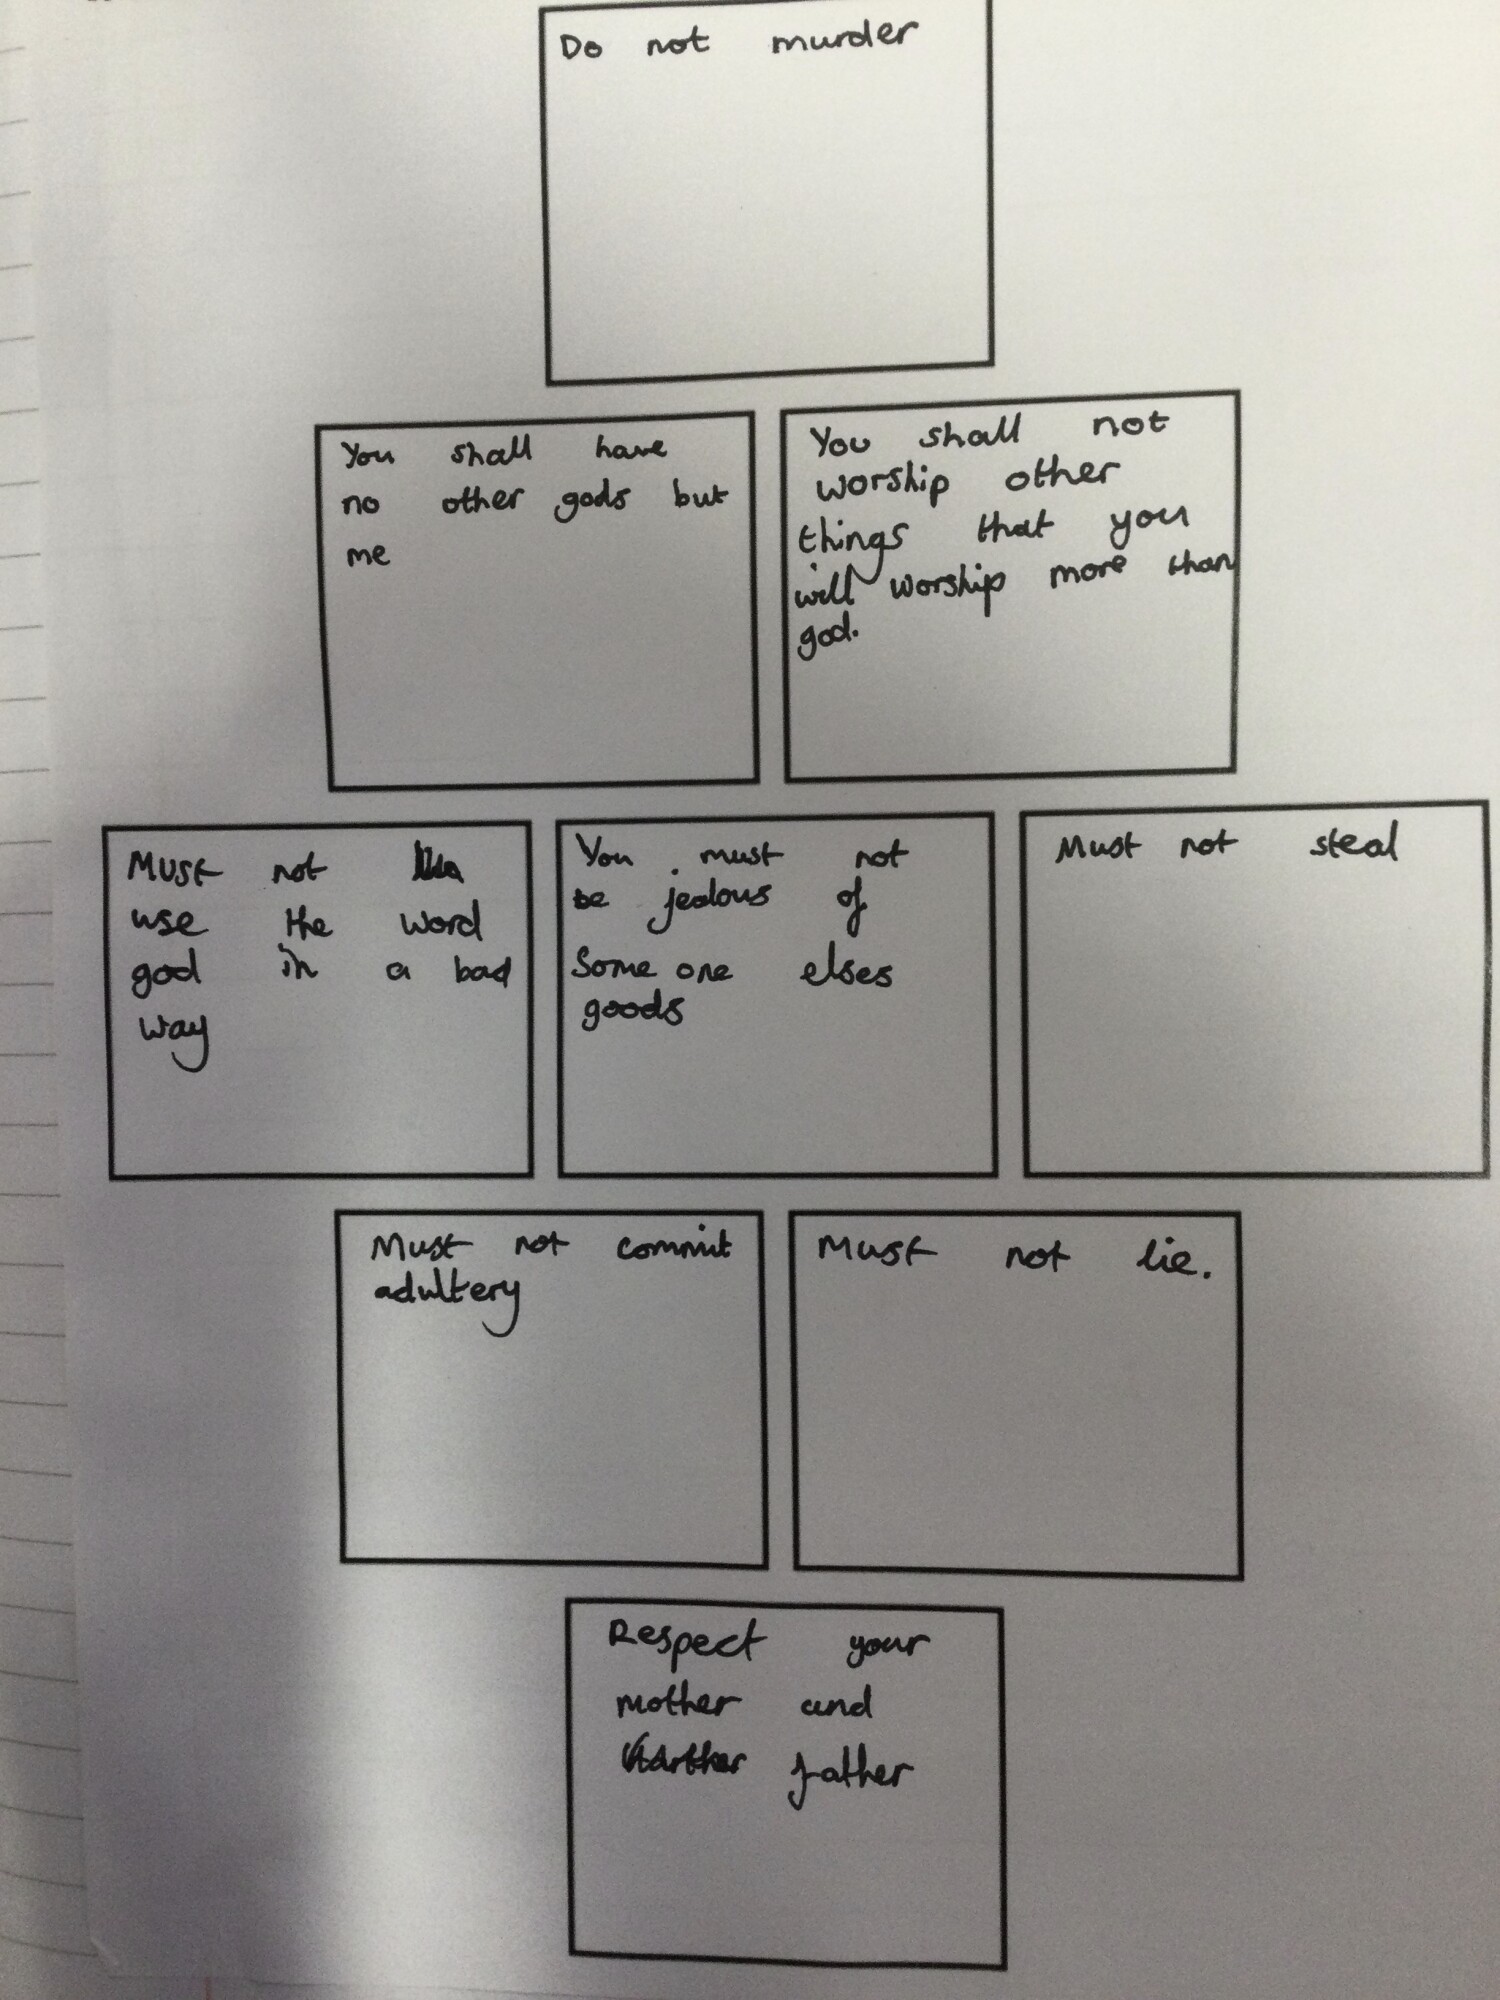 Do not murder
You shall have
no other gods but
me
You shall not
worship other
things that you
will worship more than
god.
Must not
use the word
god in a bad
way
You must not
be jealous of
Some one elses
goods
Must not steal
Must not commit
adultery
Must not lie.
Respect your
mother and
father